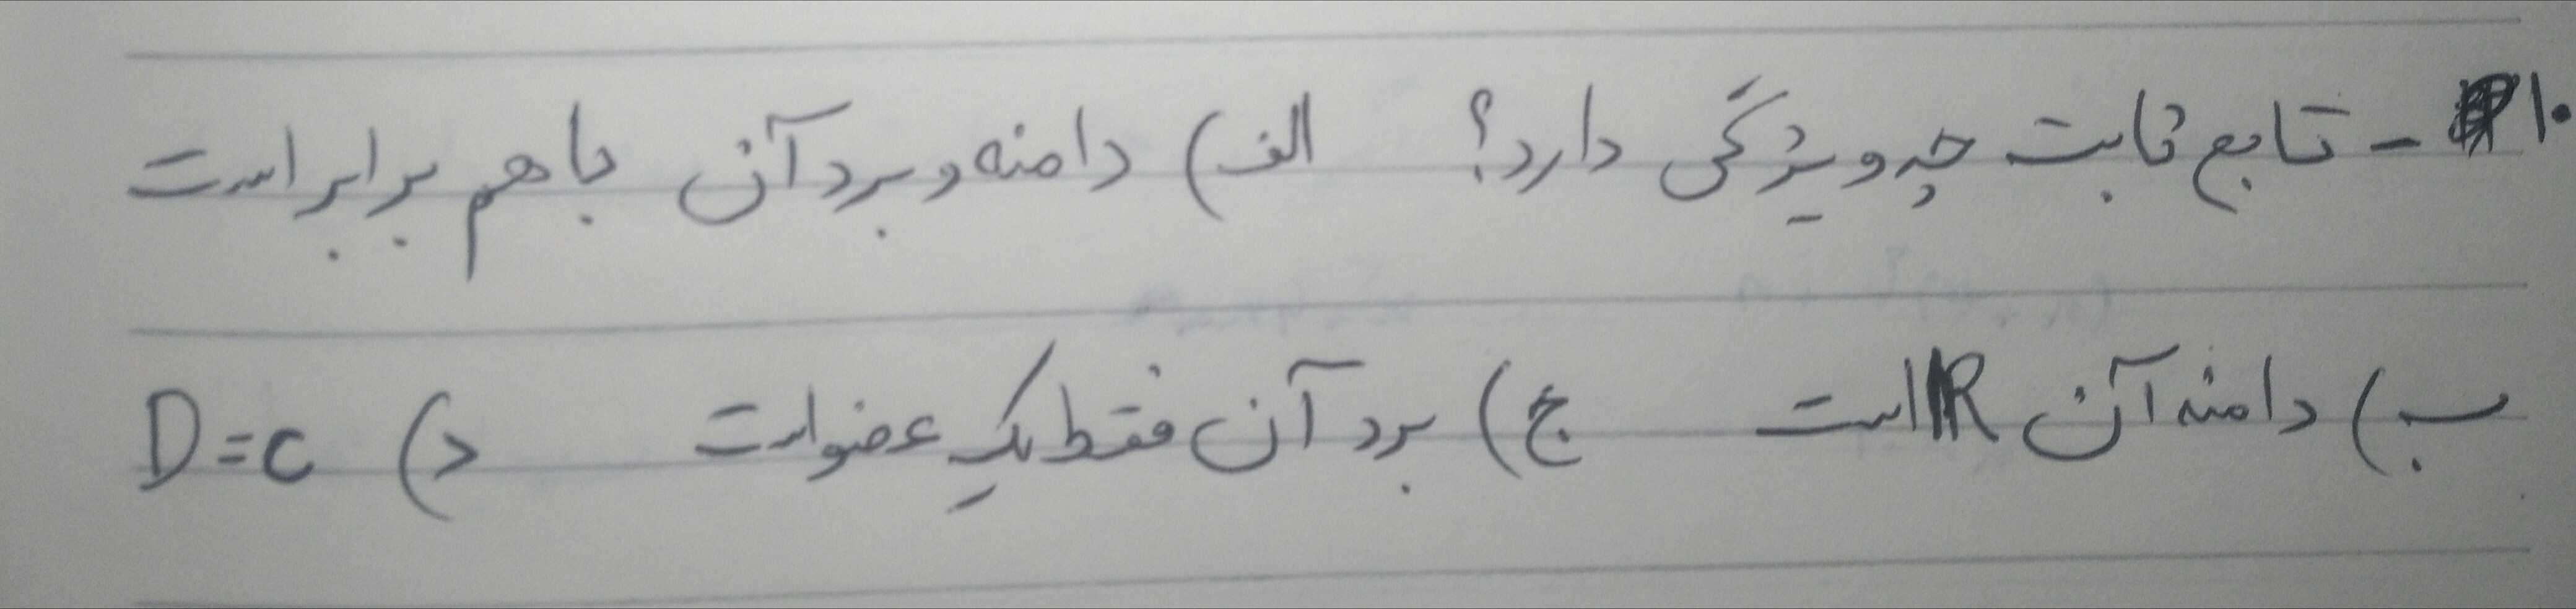 ۱۰ - تابع ثابت چه ویژگی دارد؟ الف) دامنه و برد آن با هم برابر است
ب) دامنه آن R است ج) برد آن فقط یک عضو است د) D=c